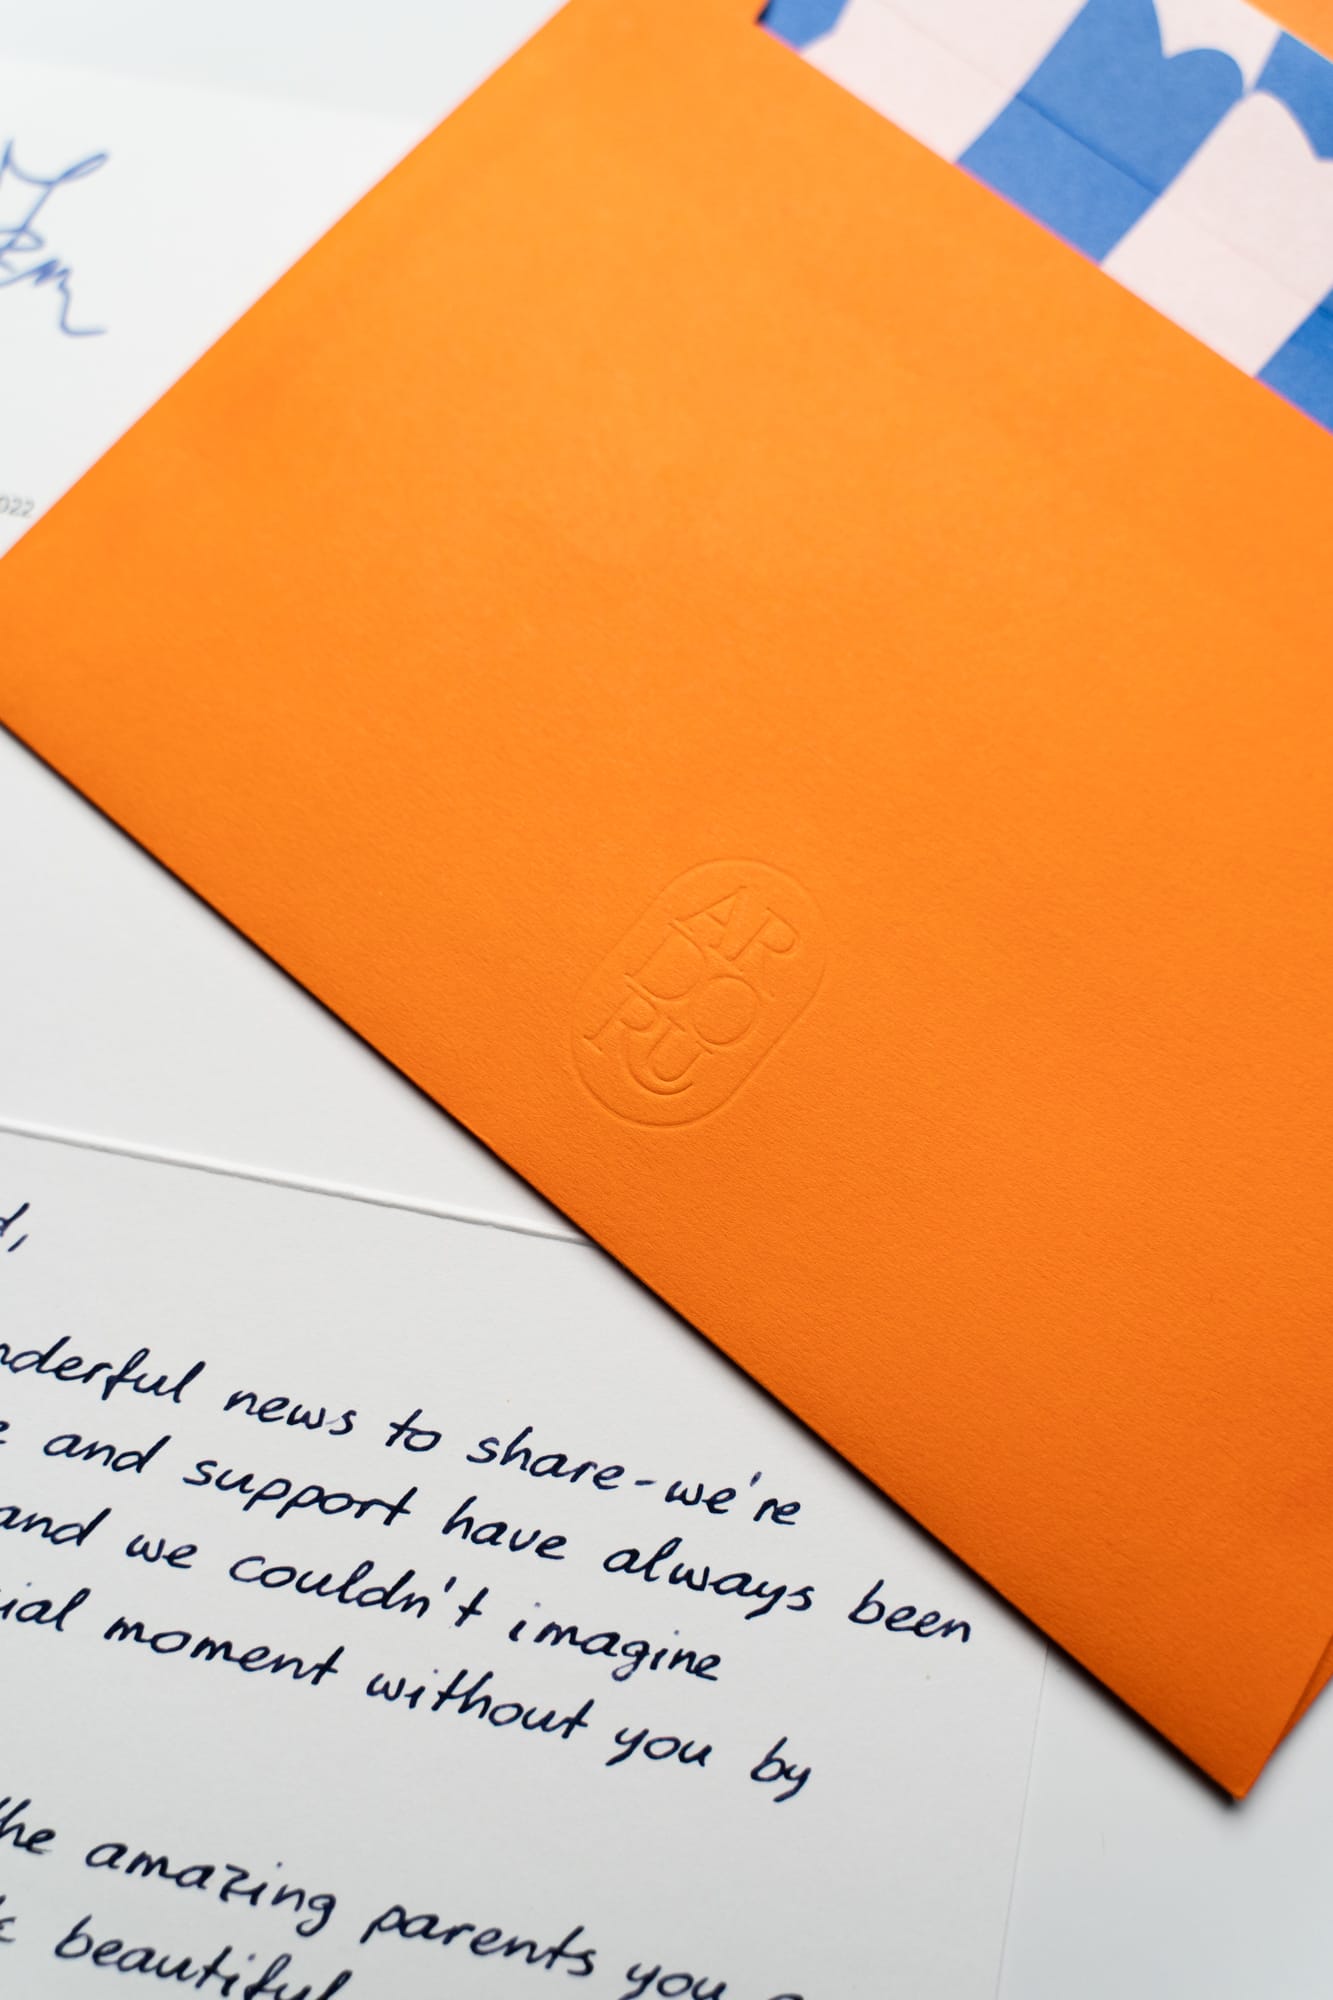 022
AR
DO
RU
news to share-we're
and support have always been
and we couldn't imagine
moment without you by
the amazing parents you
beautiful